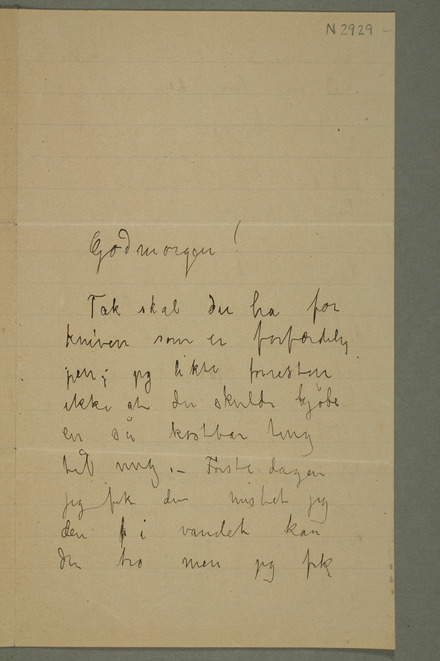 N 2929
Godmorgen!
Tak skal du ha for
kniven som er forfærdelig
pen; jeg likte forresten
ikke at du skulde kjøbe
en så kostbar ting
till mig. – Første dagen
jeg fik den mistet jeg
den i vandet kan
du tro men jeg fik